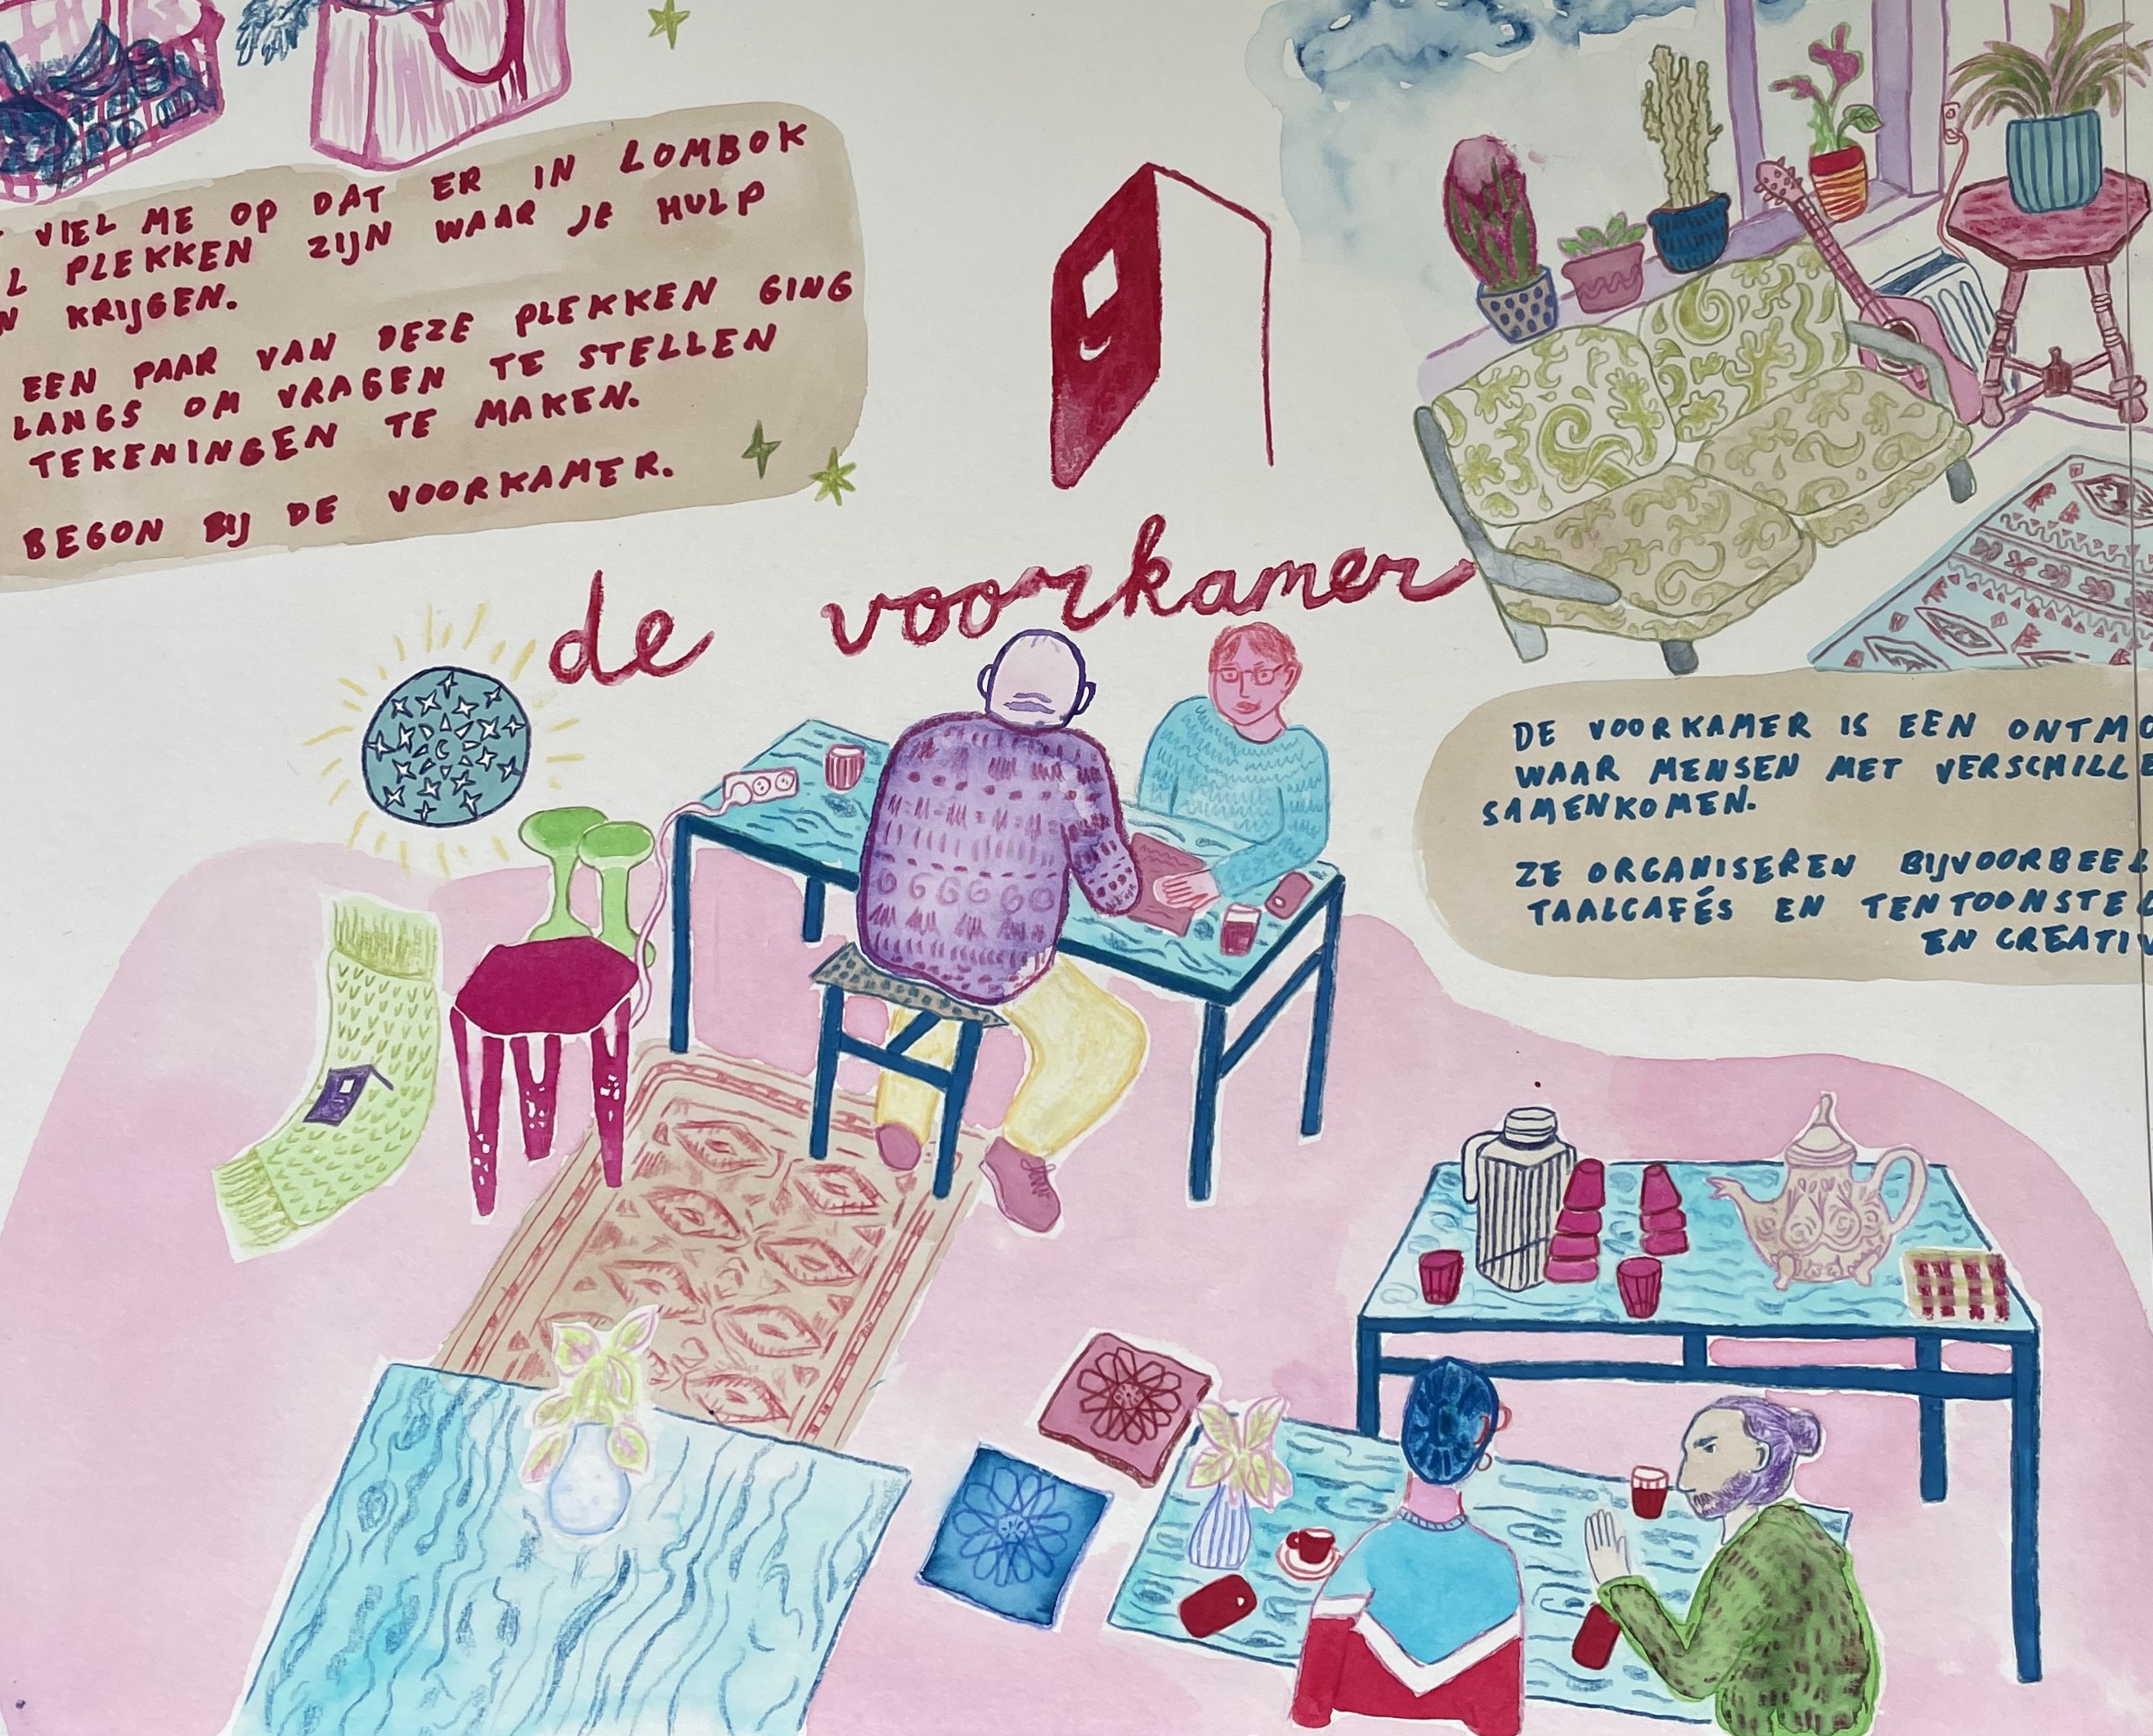 VIEL ME OP DAT ER IN LOMBOK
PLEKKEN ZIJN WAAR JE HULP
KRIJGEN.
EEN PAAR VAN DEZE PLEKKEN GING
LANGS OM VRAGEN TE STELLEN
TEKENINGEN TE MAKEN.
BEGON BIJ DE VOORKAMER.
de voorkamer
DE VOORKAMER IS EEN
WAAR MENSEN MET
SAMENKOMEN.
ZE ORGANISEREN
TAALCAFÉS EN
EN